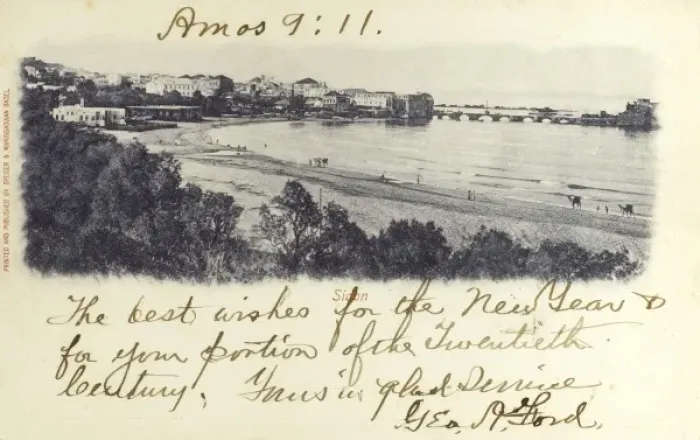 Amos 9:11.
PRINTED AND PUBLISHED BY
BASEL
Sidon
The best wishes for the New Year &
for your portion of the Twentieth
Century. Yours in glad Service
Geo. A. Ford.